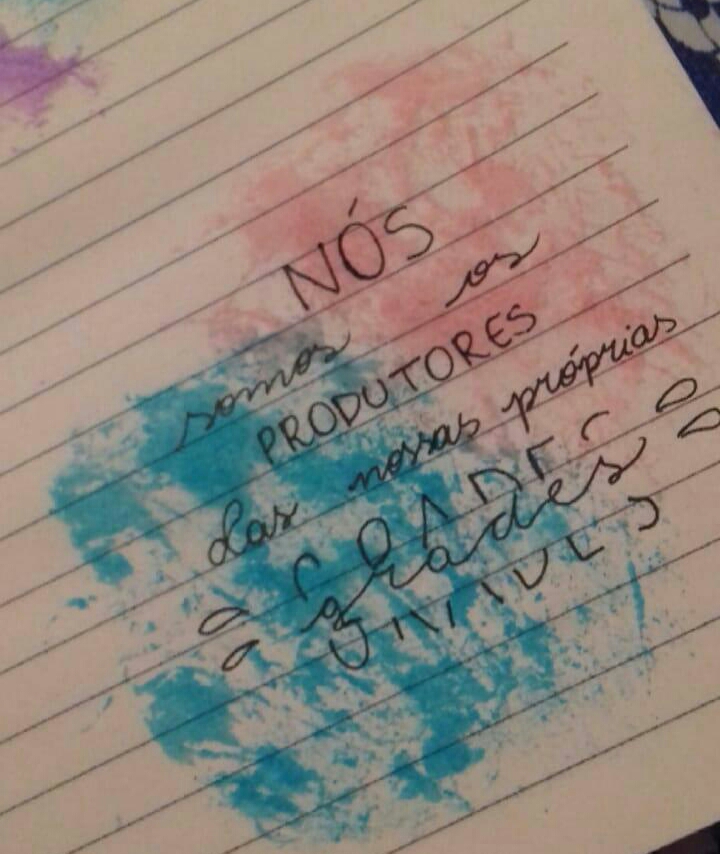 NÓS
somos os
PRODUTORES
das nossas próprias
GRADES
grades